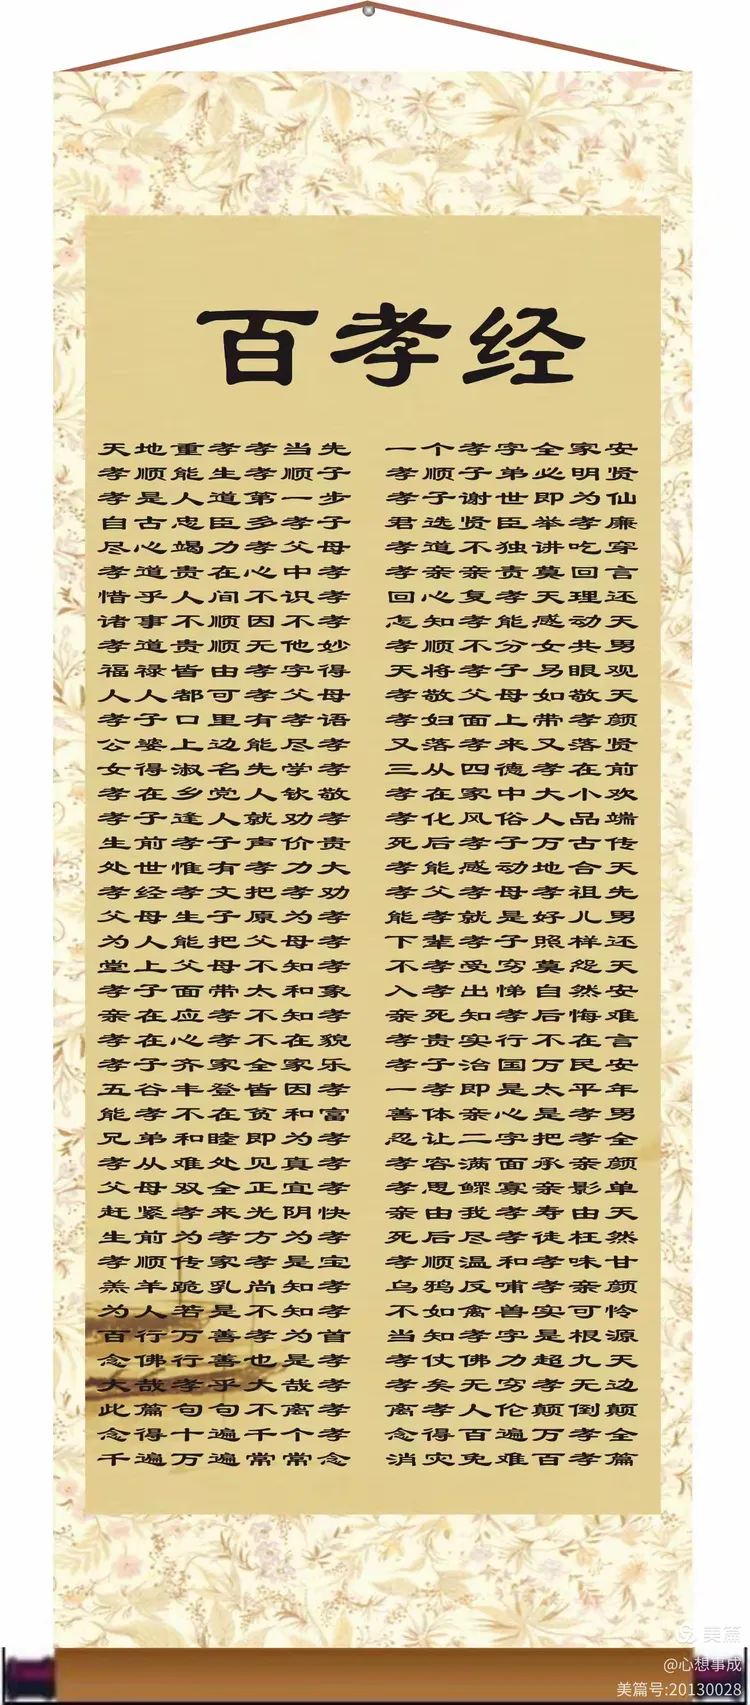 百孝经
天地重孝孝当先 一个孝字全家安
孝顺能生孝顺子 孝顺子弟必明贤
孝是人道第一步 孝子谢世即为仙
自古忠臣多孝子 君选贤臣举孝廉
尽心竭力孝父母 孝道不独讲吃穿
孝道贵在心中孝 孝亲亲责莫回言
惜乎人间不识孝 回心复孝天理还
诸事不顺因不孝 怎知孝能感动天
孝道贵顺无他妙 孝顺不分女共男
福禄皆由孝字得 天将孝子另眼观
人人都可孝父母 孝敬父母如敬天
孝子口里有孝语 孝妇面上带孝颜
公婆上边能尽孝 又落孝来又落贤
女得淑名先学孝 三从四德孝在前
孝在乡党人钦敬 孝在家中大小欢
孝子逢人就劝孝 孝化风俗人品端
生前孝子声价贵 死后孝子万古传
处世惟有孝力大 孝能感动地合天
孝经孝文把孝劝 孝父孝母孝祖先
父母生子原为孝 能孝就是好儿男
为人能把父母孝 下辈孝子照样还
堂上父母不知孝 不孝受穷莫怨天
孝子面带太和象 入孝出悌自然安
亲在应孝不知孝 亲死知孝后悔难
孝在心孝不在貌 孝贵实行不在言
孝子齐家全家乐 孝子治国万民安
五谷丰登皆因孝 一孝即是太平年
能孝不在贫和富 善体亲心是孝男
兄弟和睦即为孝 忍让二字把孝全
孝从难处见真孝 孝容满面承亲颜
父母双全正宜孝 孝思鳏寡亲影单
赶紧孝来光阴快 亲由我孝寿由天
生前为孝方为孝 死后尽孝徒枉然
孝顺传家孝是宝 孝顺温和孝味甘
羔羊跪乳尚知孝 乌鸦反哺孝亲颜
为人若是不知孝 不如禽兽实可怜
百行万善孝为首 当知孝字是根源
念佛行善也是孝 孝仗佛力超九天
大哉孝乎大哉孝 孝矣无穷孝无边
此篇句句不离孝 离孝人伦颠倒颠
念得十遍千个孝 念得百遍万孝全
千遍万遍常常念 消灾免难百孝篇
美篇
@心想事成
美篇号:20130028